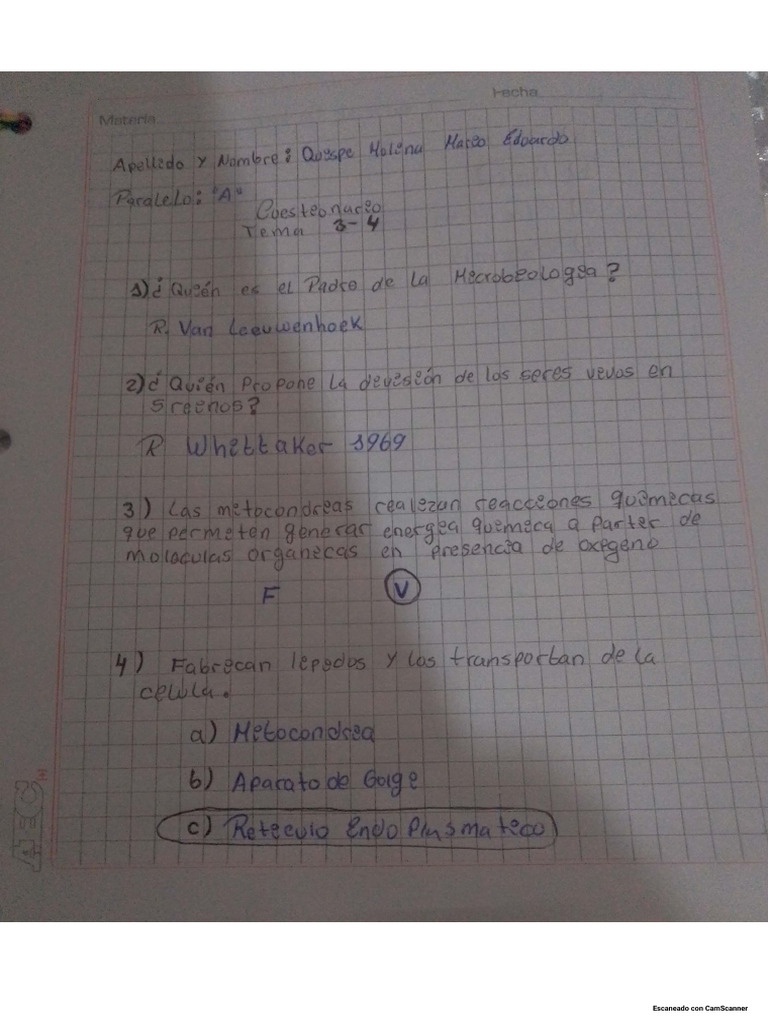 Fecha
Materia
Apellido y Nombre: Quispe Molina Mario Eduardo
Paralelo: "A"
Cuestionario
Tema 3-4
1) ¿Quién es el Padre de la Microbiologia?
R. Van Leeuwenhoek
2) ¿Quién Propone la división de los seres vivos en
5 reinos?
R Whittaker 1969
3) Las mitocondrias realizan reacciones químicas
que permiten generar energia quimica a partir de
moleculas organicas en presencia de oxigeno
F V
4) Fabrican lipidos y los transportan de la
celula.
a) Mitocondria
b) Aparato de Golgi
c) Reticulo Endo Plasmatico
Escaneado con CamScanner